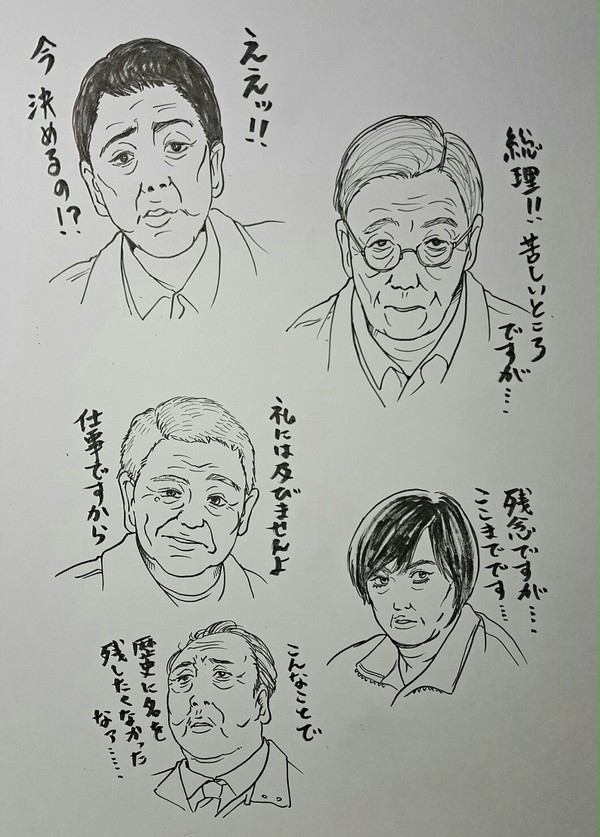 ええッ!!
今決めるの!?
総理!!苦しいところ
ですが…
礼には及びませんよ
仕事ですから
残念ですが…
ここまでです…
こんなことで
歴史に名を
残したくなかった
なァ……